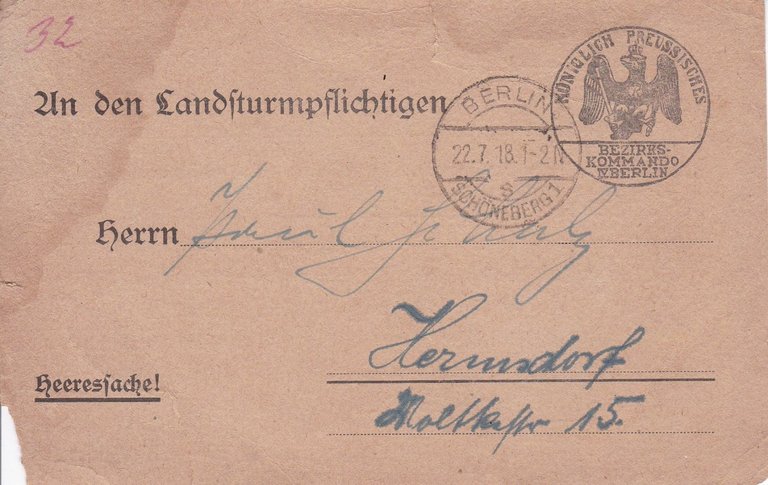 32
An den Landsturmpflichtigen
KÖNIGLICH PREUSSISCHES
BEZIRKS-
KOMMANDO
IV BERLIN
BERLIN
22.7.18.1-2N
S
SCHÖNEBERG 1
Herrn Paul
Hermsdorf
Heeressache!
Moltkestr 15.